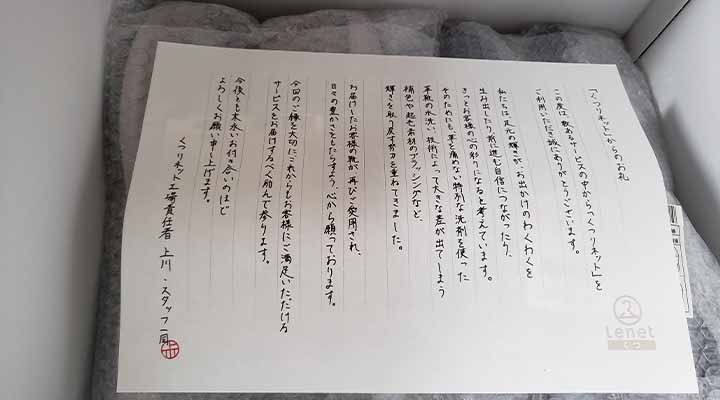 「くつリネット」からのお礼
この度は、数あるサービスの中から「くつリネット」を
ご利用いただき誠にありがとうございます。
私たちは足元の輝きが、お出かけのわくわくを
生み出したり、前に進む自信につながったり、
きっとお客様の心の彩りになると考えています。
そのためにも革を痛めない特別な洗剤を使った
革靴の水洗い、技術によって大きな差が出てしまう
補色や起毛素材のブラッシングなど、
輝きを取り戻す努力を重ねてきました。
お届けしたお客様の靴が、再びご愛用され、
日々の豊かさをもたらすよう、心から願っております。
今回のご縁を大切に、これからもお客様にご満足いただける
サービスをお届けするべく励んで参ります。
今後とも末永いお付き合いのほど
よろしくお願い申し上げます。
くつリネット工場責任者 上川・スタッフ一同
Lenet
くつ